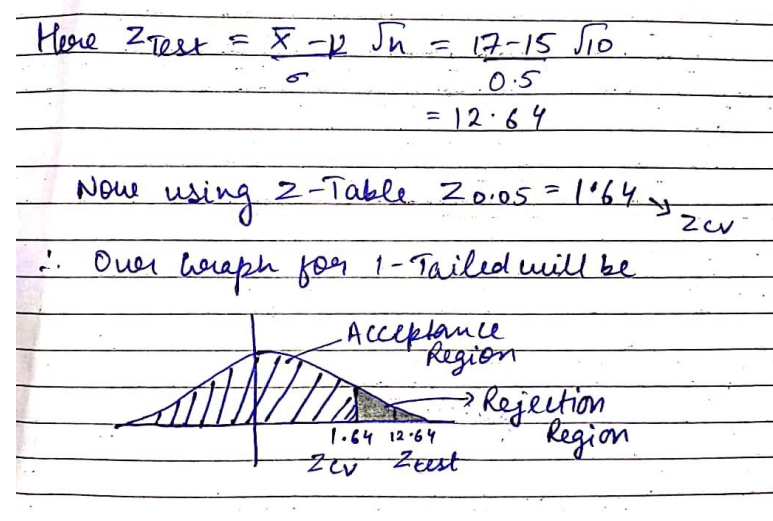 Here Z Test = x̄ - μ √n = 17-15 √10
σ 0.5
= 12.64
Now using Z-Table Z0.05 = 1.64 → Zcv
∴ Our Graph for 1-Tailed will be
Acceptance
Region
Rejection
Region
1.64 12.64
Zcv Ztest